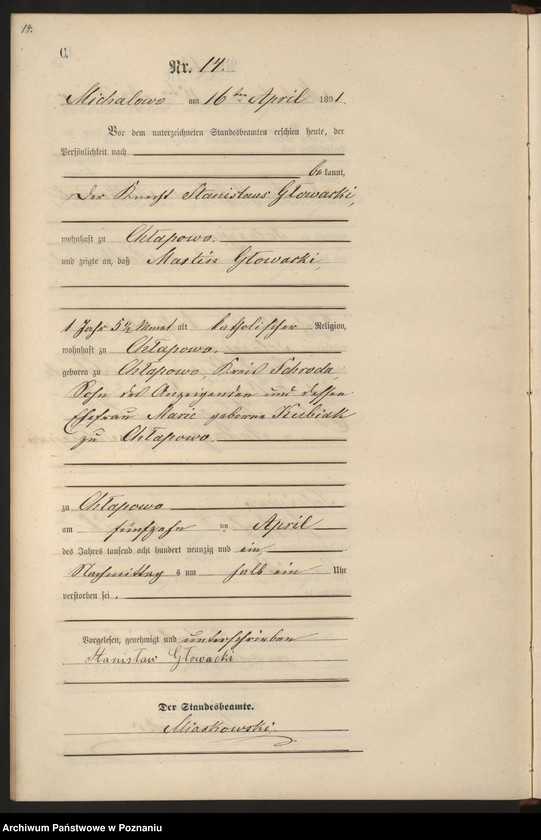 14.
C.
Nr. 14.
Michalowo am 16ten April 1891.
Vor dem unterzeichneten Standesbeamten erschien heute, der
Persönlichkeit nach
bekannt,
Der Knecht Stanislaus Głowacki,
wohnhaft zu Chłapowo.
und zeigte an, daß Martin Głowacki,
1 Jahr 5½ Monat alt katholischer Religion,
wohnhaft zu Chłapowo.
geboren zu Chłapowo, Kreis Schroda,
Sohn des Anzeigenden und dessen
Ehefrau Marie geborene Kubiak
zu Chłapowo.
zu Chłapowo
am fünfzehn ten April
des Jahres tausend acht hundert neunzig und ein,
Nachmittag s um halb ein Uhr
verstorben sei.
Vorgelesen, genehmigt und unterschrieben
Stanisław Głowacki
Der Standesbeamte.
Miaskowski
Archiwum Państwowe w Poznaniu